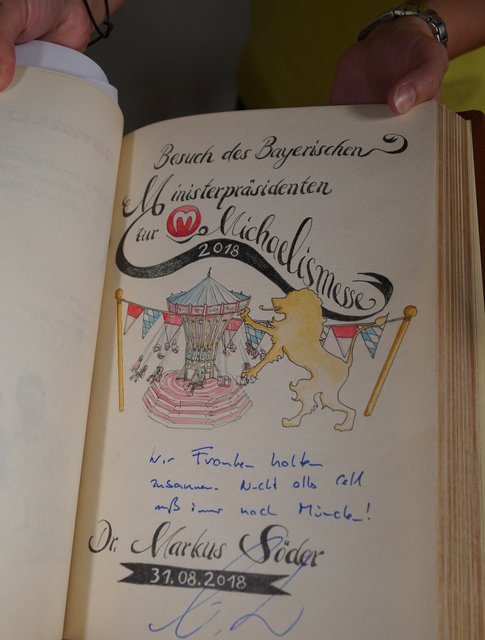 Besuch des Bayerischen
Ministerpräsidenten
zur M. Michaelismesse
2018
Wir Franken halten
zusammen. Nicht alles Geld
muß immer nach München!
Dr. Markus Söder
31.08.2018